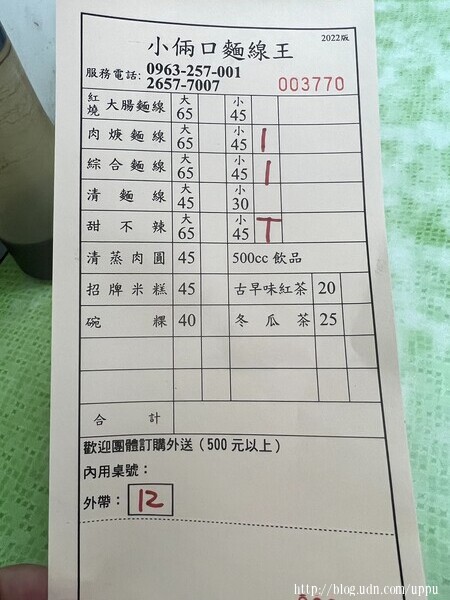 小倆口麵線王
2022版
服務電話: 0963-257-001
2657-7007
003770
紅燒 大腸麵線 大65 小45
肉焿麵線 大65 小45 1
綜合麵線 大65 小45 1
清麵線 大45 小30
甜不辣 大65 小45 T
清蒸肉圓 45 500cc 飲品
招牌米糕 45 古早味紅茶 20
碗粿 40 冬瓜茶 25
合計
歡迎團體訂購外送(500元以上)
內用桌號:
外帶: 12
http://blog.udn.com/uppu